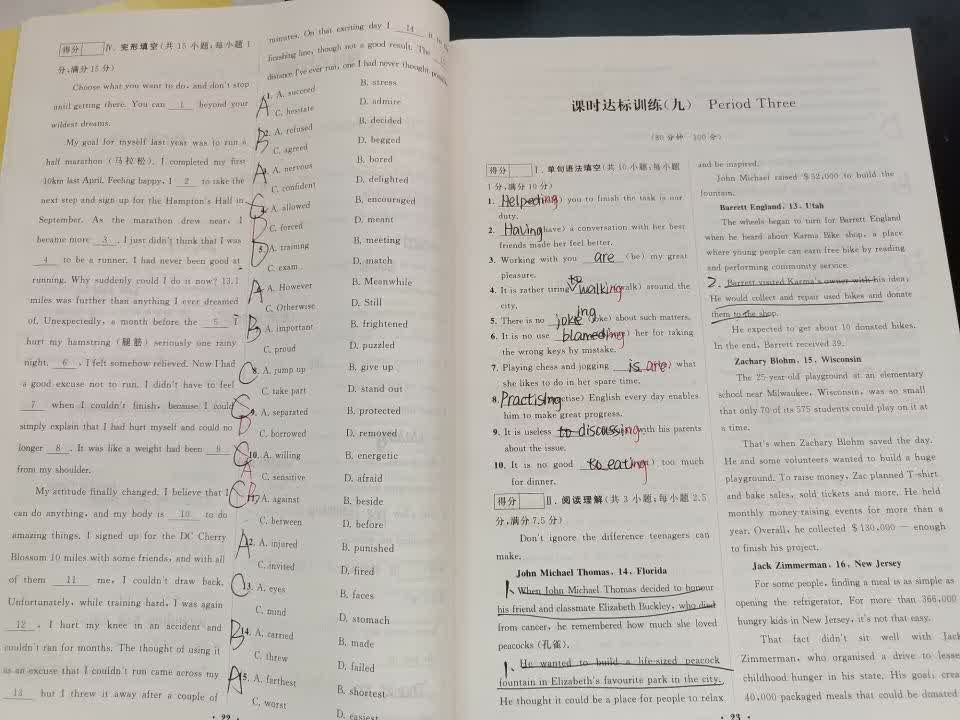 得分 Ⅳ. 完形填空(共 15 小题,每小题 1
分,满分 15 分)
Choose what you want to do, and don't stop
until getting there. You can 1 beyond your
wildest dreams.
My goal for myself last year was to run a
half marathon (马拉松). I completed my first
10km last April. Feeling happy, I 2 to take the
next step and sign up for the Hampton's Half in
September. As the marathon drew near, I
became more 3. I just didn't think that I was
4 to be a runner. I had never been good at
running. Why suddenly could I do it now? 13.1
miles was further than anything I ever dreamed
of. Unexpectedly, a month before the 5 I
hurt my hamstring (腿筋) seriously one rainy
night. 6, I felt somehow relieved. Now I had
a good excuse not to run. I didn't have to feel
7 when I couldn't finish, because I could
simply explain that I had hurt myself and could no
longer 8. It was like a weight had been 9
from my shoulder.
My attitude finally changed. I believe that I
can do anything, and my body is 10 to do
amazing things. I signed up for the DC Cherry
Blossom 10 miles with some friends, and with all
of them 11 me, I couldn't draw back.
Unfortunately, while training hard, I was again
12. I hurt my knee in an accident and
couldn't ran for months. The thought of using it
as an excuse that I couldn't run came across my
13 but I threw it away after a couple of
minutes. On that exciting day I 14 it to
finishing line, though not a good result. The
distance I've ever run, one I had never thought
A 1. A. succeed B. stress
C. hesitate D. admire
B 2. A. refused B. decided
C. agreed D. begged
A 3. A. nervous B. bored
C. confident D. delighted
4. A. allowed B. encouraged
C. forced D. meant
5. A. training B. meeting
C. exam D. match
A 6. A. However B. Meanwhile
C. Otherwise D. Still
B 7. A. important B. frightened
C. proud D. puzzled
C 8. A. jump up B. give up
C. take part D. stand out
C D 9. A. separated B. protected
C. borrowed D. removed
C A 10. A. willing B. energetic
C. sensitive D. afraid
C 11. A. against B. beside
C. between D. before
A 12. A. injared B. punished
C. invited D. fired
C 13. A. eyes B. faces
C. mind D. stomach
B 14. A. carried B. made
C. threw D. failed
A 15. A. farthest B. shortest
C. worst D. easiest
· 22 ·
课时达标训练(九) Period Three
(80 分钟 100 分)
得分 Ⅰ. 单句语法填空(共 10 小题,每小题
1 分,满分 10 分)
1. Helpeding) you to finish the task is our
duty.
2. Having have) a conversation with her best
friends made her feel better.
3. Working with you are (be) my great
pleasure.
4. It is rather tiring to walking walk) around the
city.
5. There is no jokeing joke) about such matters.
6. It is no use blameding her for taking
the wrong keys by mistake.
7. Playing chess and jogging is are) what
she likes to do in her spare time.
8. Practising ctise) English every day enables
him to make great progress.
9. It is useless to discussing with his parents
about the issue.
10. It is no good to eating ) too much
for dinner.
得分 Ⅱ. 阅读理解(共 3 小题,每小题 2.5
分,满分 7.5 分)
Don't ignore the difference teenagers can
make.
John Michael Thomas, 14, Florida
1. When John Michael Thomas decided to honour
his friend and classmate Elizabeth Buckley, who died
from cancer, he remembered how much she loved
peacocks (孔雀).
1. He wanted to build a life-sized peacock
fountain in Elizabeth's favourite park in the city.
He thought it could be a place for people to relax
and be inspired.
John Michael raised $52,000 to build the
fountain.
Barrett England, 13, Utah
The wheels began to turn for Barrett England
when he heard about Karma Bike shop, a place
where young people can earn free bike by reading
and performing community service.
2. Barrett visited Karma's owner with his idea:
He would collect and repair used bikes and donate
them to the shop.
He expected to get about 10 donated bikes.
In the end, Barrett received 39.
Zachary Blohm, 15, Wisconsin
The 25-year-old playground at an elementary
school near Milwaukee, Wisconsin, was so small
that only 70 of its 575 students could play on it at
a time.
That's when Zachary Blohm saved the day.
He and some volunteers wanted to build a huge
playground. To raise money, Zac planned T-shirt
and bake sales, sold tickets and more. He held
monthly money-raising events for more than a
year. Overall, he collected $130,000 — enough
to finish his project.
Jack Zimmerman, 16, New Jersey
For some people, finding a meal is as simple as
opening the refrigerator. For more than 366,000
hungry kids in New Jersey, it's not that easy.
That fact didn't sit well with Jack
Zimmerman, who organised a drive to lesse
childhood hunger in his state. His goal: crea
40,000 packaged meals that could be donated
· 23 ·